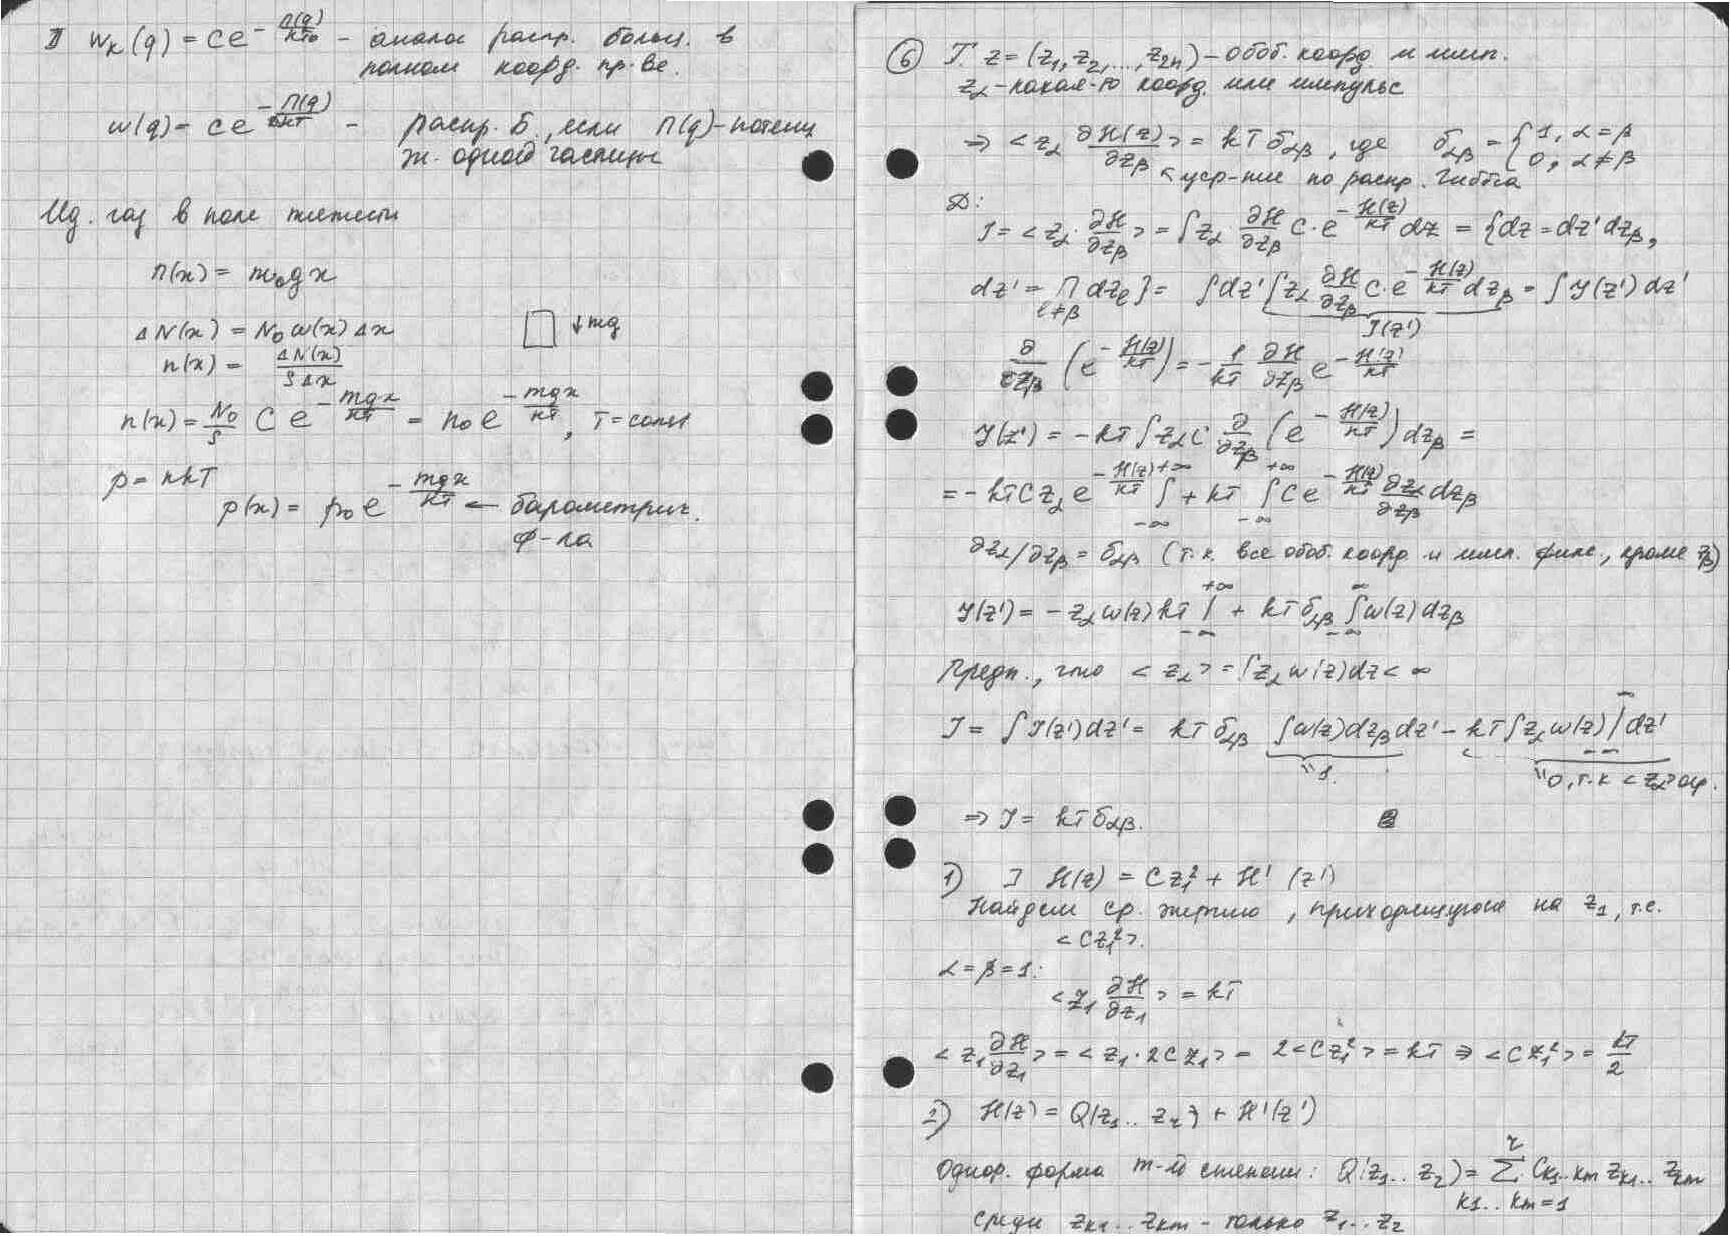 II w_k(q) = C e^{-П(q)/kT_0} – аналог распр. больц. в
полном коорд. пр-ве.
w(q) = C e^{-П(q)/kT} – распр. Б., если П(q) – потенц
эн. одной частицы
Ид. газ в поле тяжести
П(x) = m_0gx
ΔN(x) = N_0 w(x) Δx
↓mg
n(x) = ΔN(x)/SΔx
n(x) = N_0/S C e^{-mgx/kT} = n_0 e^{-mgx/kT}, T = const
p = nkT
p(x) = p_0 e^{-mgx/kT} ← барометрич.
ф-ла
⑥ Т. z = (z_1, z_2, ..., z_{2n}) – обоб. коорд. и имп.
z_α – какая-то коорд. или импульс
⇒ <z_α ∂H(z)/∂z_β> = kT δ_{αβ}, где δ_{αβ} = {1, α = β
0, α ≠ β
уср-ние по распр. Гиббса
Д:
I = <z_α · ∂H/∂z_β> = ∫z_α ∂H/∂z_β C · e^{-H(z)/kT} dz = {dz = dz' dz_β,
dz' = П_{l≠β} dz_l} = ∫dz' ∫z_α ∂H/∂z_β C · e^{-H(z)/kT} dz_β = ∫I(z') dz'
I(z')
∂/∂z_β (e^{-H(z)/kT}) = -1/kT ∂H/∂z_β e^{-H(z)/kT}
I(z') = -kT ∫z_α C ∂/∂z_β (e^{-H(z)/kT}) dz_β =
= -kTC z_α e^{-H(z)/kT} ∫_{-∞}^{+∞} + kT ∫_{-∞}^{+∞} C e^{-H(z)/kT} ∂z_α/∂z_β dz_β
∂z_α/∂z_β = δ_{αβ} (т.к. все обоб. коорд. и имп. фикс., кроме z_β)
I(z') = -z_α w(z) kT |_{-∞}^{+∞} + kT δ_{αβ} ∫_{-∞}^{∞} w(z) dz_β
Предп., что <z_α> = ∫z_α w(z) dz < ∞
I = ∫I(z') dz' = kT δ_{αβ} ∫w(z) dz_β dz' - kT ∫z_α w(z) |_{-∞}^{∞} dz'
"1. "0, т.к <z_α> огр.
⇒ I = kT δ_{αβ}.
1) ] H(z) = Cz_1^2 + H'(z')
Найдем ср. энергию, приходящуюся на z_1, т.е.
<Cz_1^2>.
α = β = 1:
<z_1 ∂H/∂z_1> = kT
<z_1 ∂H/∂z_1> = <z_1 · 2Cz_1> = 2<Cz_1^2> = kT ⇒ <Cz_1^2> = kT/2
2) H(z) = Q(z_1.. z_r) + H'(z')
Однор. форма m-й степени: Q(z_1.. z_r) = Σ_{k1..km=1}^{r} C_{k1..km} z_{k1}.. z_{km}
среди z_{k1}.. z_{km} – только z_1.. z_r